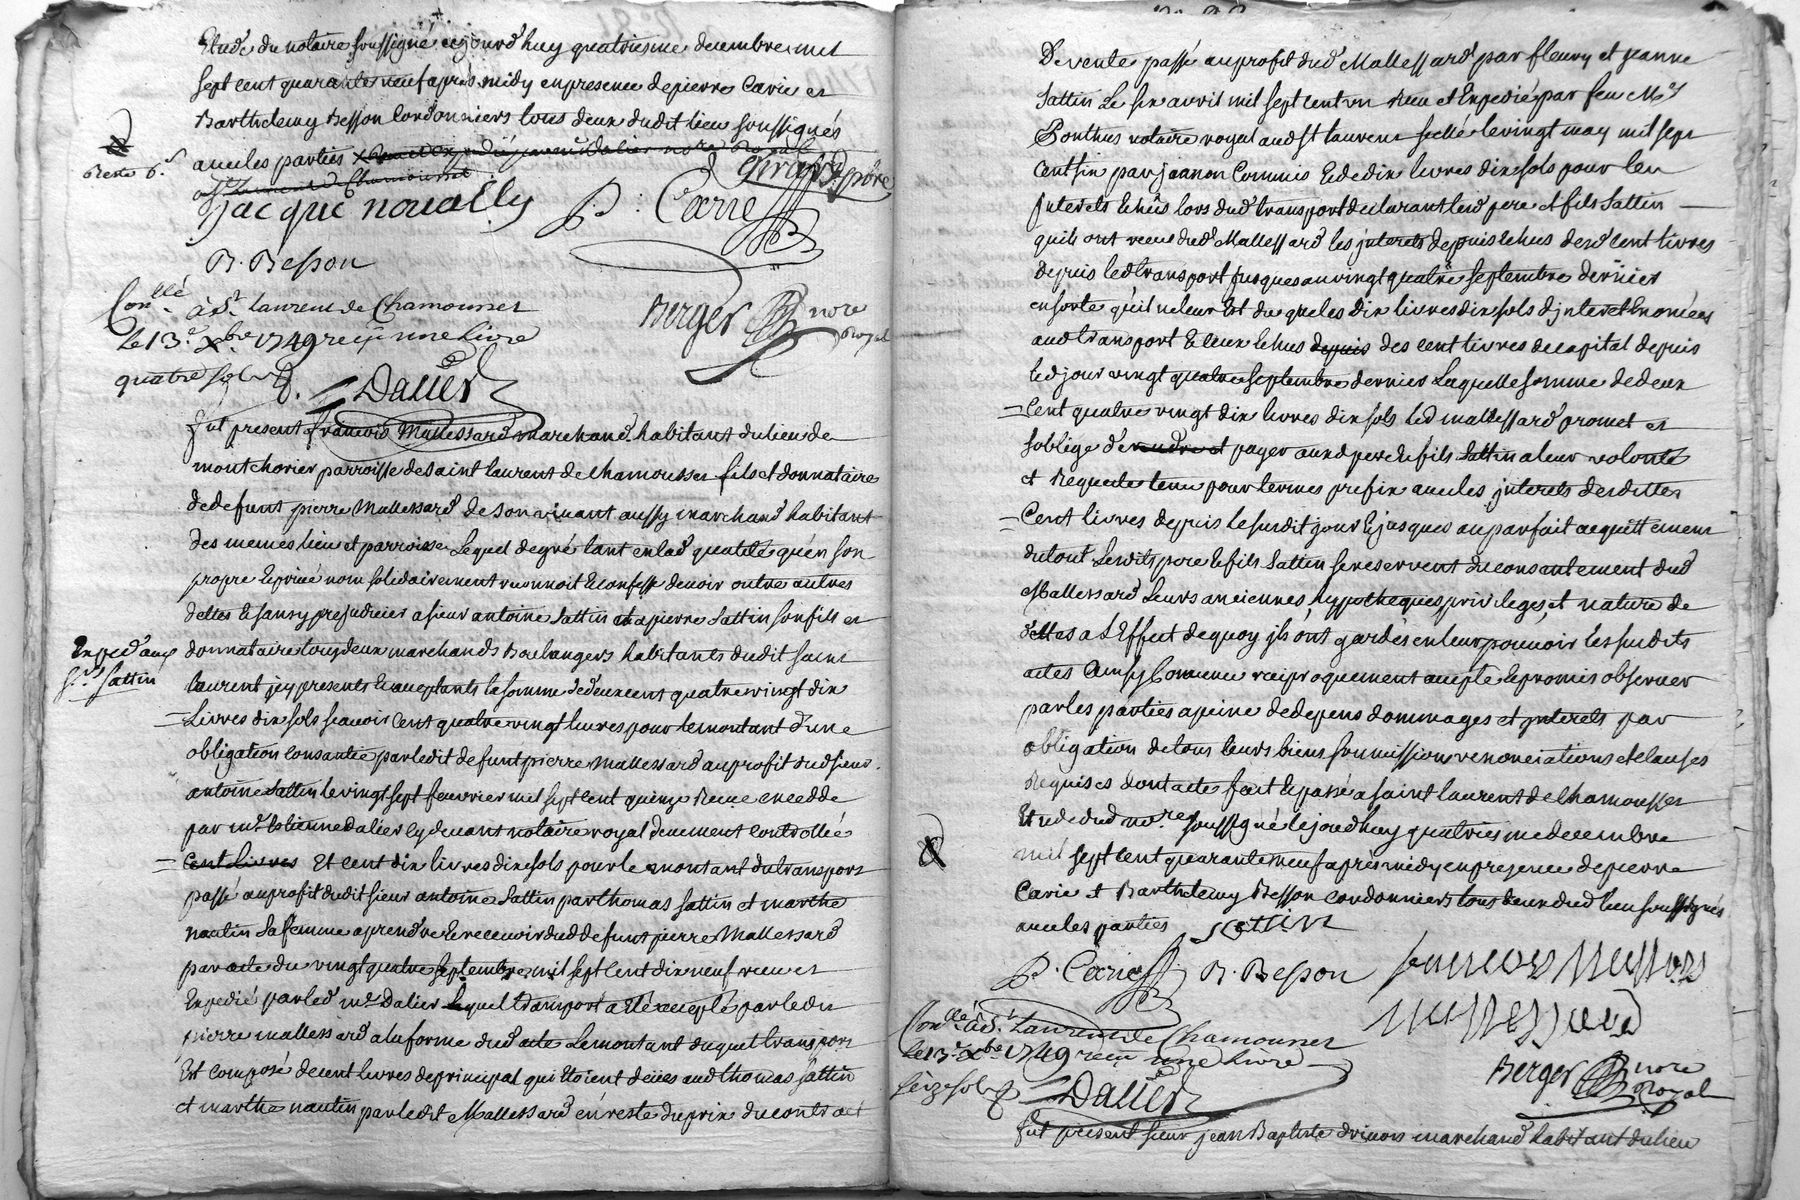 Etude du notaire soussigné cejourd'huy quatriesme decembre mil
sept cent quarante neuf après midy en presence de pierre Carie et
Barthelemy Besson Cordonniers tous deux dudit lieu soussignés
avec les parties
reste 6.s
Jacque noually
P. Carie
B. Besson
Conllé à St. Laurent de Chamousset
le 13.e xbre 1749 reçu une livre
quatre sols
Dalier
Berger nore royal
fut present francois Mallessard marchand habitant du lieu de
montchorier parroisse de Saint laurent de chamousset fils et donnataire
de defunt pierre Mallessard de Son vivant aussy marchand habitant
des memes lieu et parroisse Lequel de gré tant en lad qualité qu'en son
propre et privé nom solidairement reconnoit et confesse devoir outre autres
dettes et sans y prejudicier a sieur antoine Sattin et a pierre Sattin son fils et
Exped aux
Srs Sattin
donnataire tous deux marchands Boulangers habitants dudit saint
laurent icy presents et acceptants la somme de deux cent quatre vingt dix
Livres dix sols scavoir Cent quatre vingt livres pour le montant d'une
obligation consantie par ledit defunt pierre Mallessard au profit dud sieur
antoine Sattin le vingt sept feuvrier mil sept cent quinze Receue
par me. Estienne Dalier cy devant notaire royal deuement controllée
Cent livres Et cent dix livres dix sols pour le montant du transport
passé au profit dudit sieur antoine Sattin par thomas Sattin et marthe
nautin Sa femme a prendre et recevoir dud defunt pierre Mallessard
par acte du vingt quatre septembre mil sept cent dix neuf receu et
Expedié par led me. Dalier Lequel transport a Eté accepté par ledit
pierre mallessard a la forme dud acte Le montant duquel transport
Est composé de cent livres de principal qui Etoient deues aud thomas Sattin
et marthe nautin par ledit Mallessard en reste du prix du contract
De vente passé au profit dud Mallessard par fleury et jeanne
Sattin Le six avril mil sept cent un Receu et Expedié par feu Me.
Ponthus notaire royal aud St laurent scellé le vingt may mil sept
Cent six par jannon Commis Et de dix livres dix sols pour les
Interets Echus lors dud transport declarant lesd pere et fils Sattin
quils ont receu dud Mallessard les interets depuis Echus desd cent livres
depuis led transport jusques au vingt quatre septembre dernier
en sorte qu'il ne leur Est du que les Dix livres dix sols d'interet Enoncées
aud transport Et ceux Echus depuis des cent livres de capital depuis
led jour vingt quatre septembre dernier Laquelle somme de deux
Cent quatre vingt dix livres dix sols led mallessard promet et
soblige de rendre et payer auxd pere et fils Sattin a leur volonté
et Requete tenu pour termes prefix avec les interets desdittes
Cent livres depuis le susdit jour et jusques au parfait acquittement
du tout Lesdits pere et fils Sattin se reservent du consantement dud
Mallessard Leurs anciennes hypotheques, privileges, et nature de
dettes a L'Effect de quoy ils ont gardés en leur pouvoir les susdits
actes Ainsy Convenu reciproquement accepté et promis observer
par les parties a peine de depens dommages et interets par
obligation de tous leurs biens soumissions renonciations et clauses
Requises dont acte fait et passé a saint laurent de Chamousset
Etude dud nore. soussigné cejourd'huy quatriesme decembre
mil sept cent quarante neuf après midy en presence de pierre
Carie et Barthelemy Besson cordonniers tous deux dud lieu soussignés
avec les parties Satin
P. Carie B. Besson
Mallessard
Conllé à St. Laurent de Chamousset
le 13.e xbre 1749 reçu une livre
seize sols
Dalier
Berger nore royal
fut present sieur jean Baptiste marchand habitant du lieu